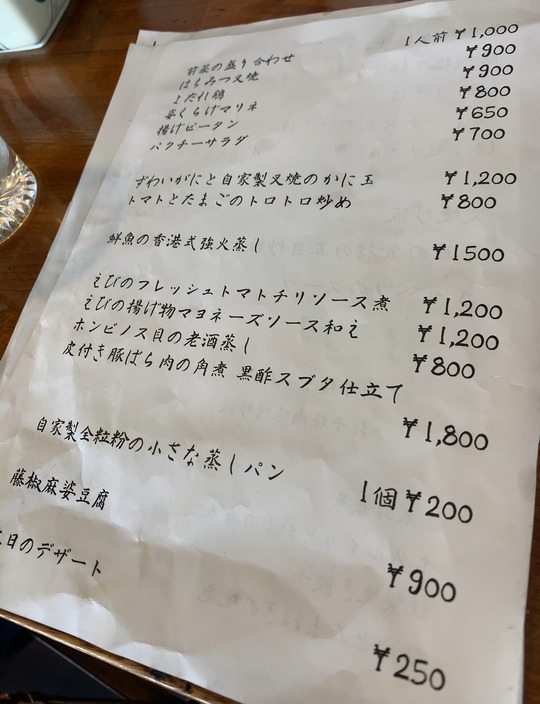 前菜の盛り合わせ 1人前 ¥1,000
はちみつ叉焼 ¥900
よだれ鶏 ¥900
姜くらげマリネ ¥800
揚げピータン ¥650
パクチーサラダ ¥700
ずわいがにと自家製叉焼のかに玉 ¥1,200
トマトとたまごのトロトロ炒め ¥800
鮮魚の香港式強火蒸し ¥1500
えびのフレッシュトマトチリソース煮 ¥1,200
えびの揚げ物マヨネーズソース和え ¥1,200
ホンビノス貝の老酒蒸し ¥800
皮付き豚ばら肉の角煮 黒酢スブタ仕立て ¥1,800
自家製全粒粉の小さな蒸しパン 1個 ¥200
藤椒麻婆豆腐 ¥900
日のデザート ¥250